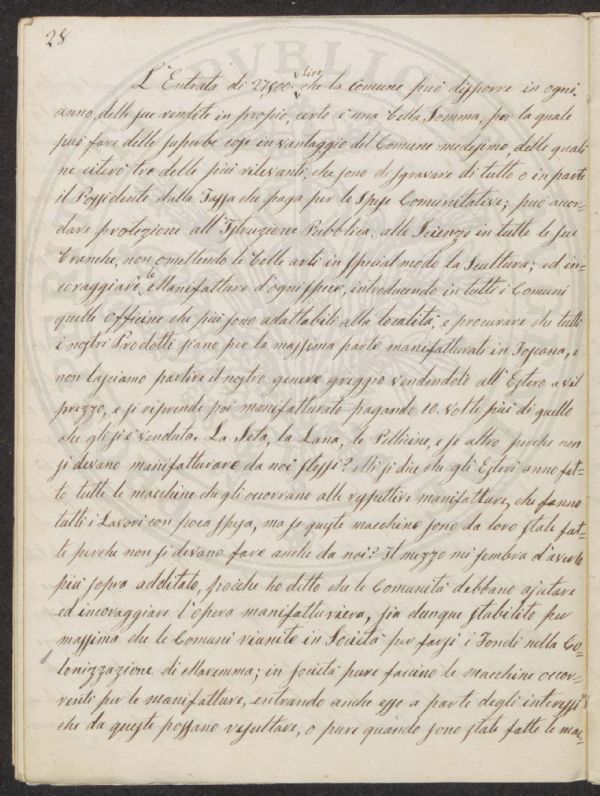 28
L'Entrata di 27,500 Lire che la Comune può disporre in ogni
anno, delle sue rendite in proprio, certo è una bella Somma, per la quale
può fare delle superbe cose in vantaggio del Comune medesimo delle quali
ne citerò tre delle più rilevanti, che sono di sgravare di tutto o in parte
il Possidente dalla Tassa che paga per le Spese Comunitative; può accor-
dare protezioni all'Istruzione Pubblica, alle Scienze in tutte le sue
branche, non omettendo le belle arti in special modo la Scultura; ed in-
coraggiare le Manifatture d'ogni spece, introducendo in tutti i Comuni
quelle Officine che più sono adattabili alla località, e procurare che tutti
i nostri Prodotti siano per la massima parte manifatturati in Toscana, e
non lasciamo partire il nostro genere greggio vendendolo all'Estero a vil
prezzo, e si riprende poi manifatturato pagando 10. volte più di quello
che gli si è venduto. La Seta, la Lana, le Pelliccine, e se altro perche non
si devano manifatturare da noi stessi? Mi si dice che gli Esteri anno fat-
to tutte le macchine che gli occorrano alle respettive manifatture, che fanno
tutti i Lavori con poca spesa, ma se queste macchine sono da loro state fat-
te perche non si devano fare anche da noi? Il mezzo mi sembra d'averlo
più sopra additato, poiche ho detto che le Comunità debbano ajutare
ed incoraggiare l'opera manifatturiera, sia dunque stabilito per
massima che le Comuni riunite in Società per farsi i Fondi nella Co-
lonizzazione di Maremma; in società pure faccino le macchine occor-
renti per le manifatture, entrando anche esse a parte degli interessi
che da queste possano resultare, o pure quando sono state fatte le mac-